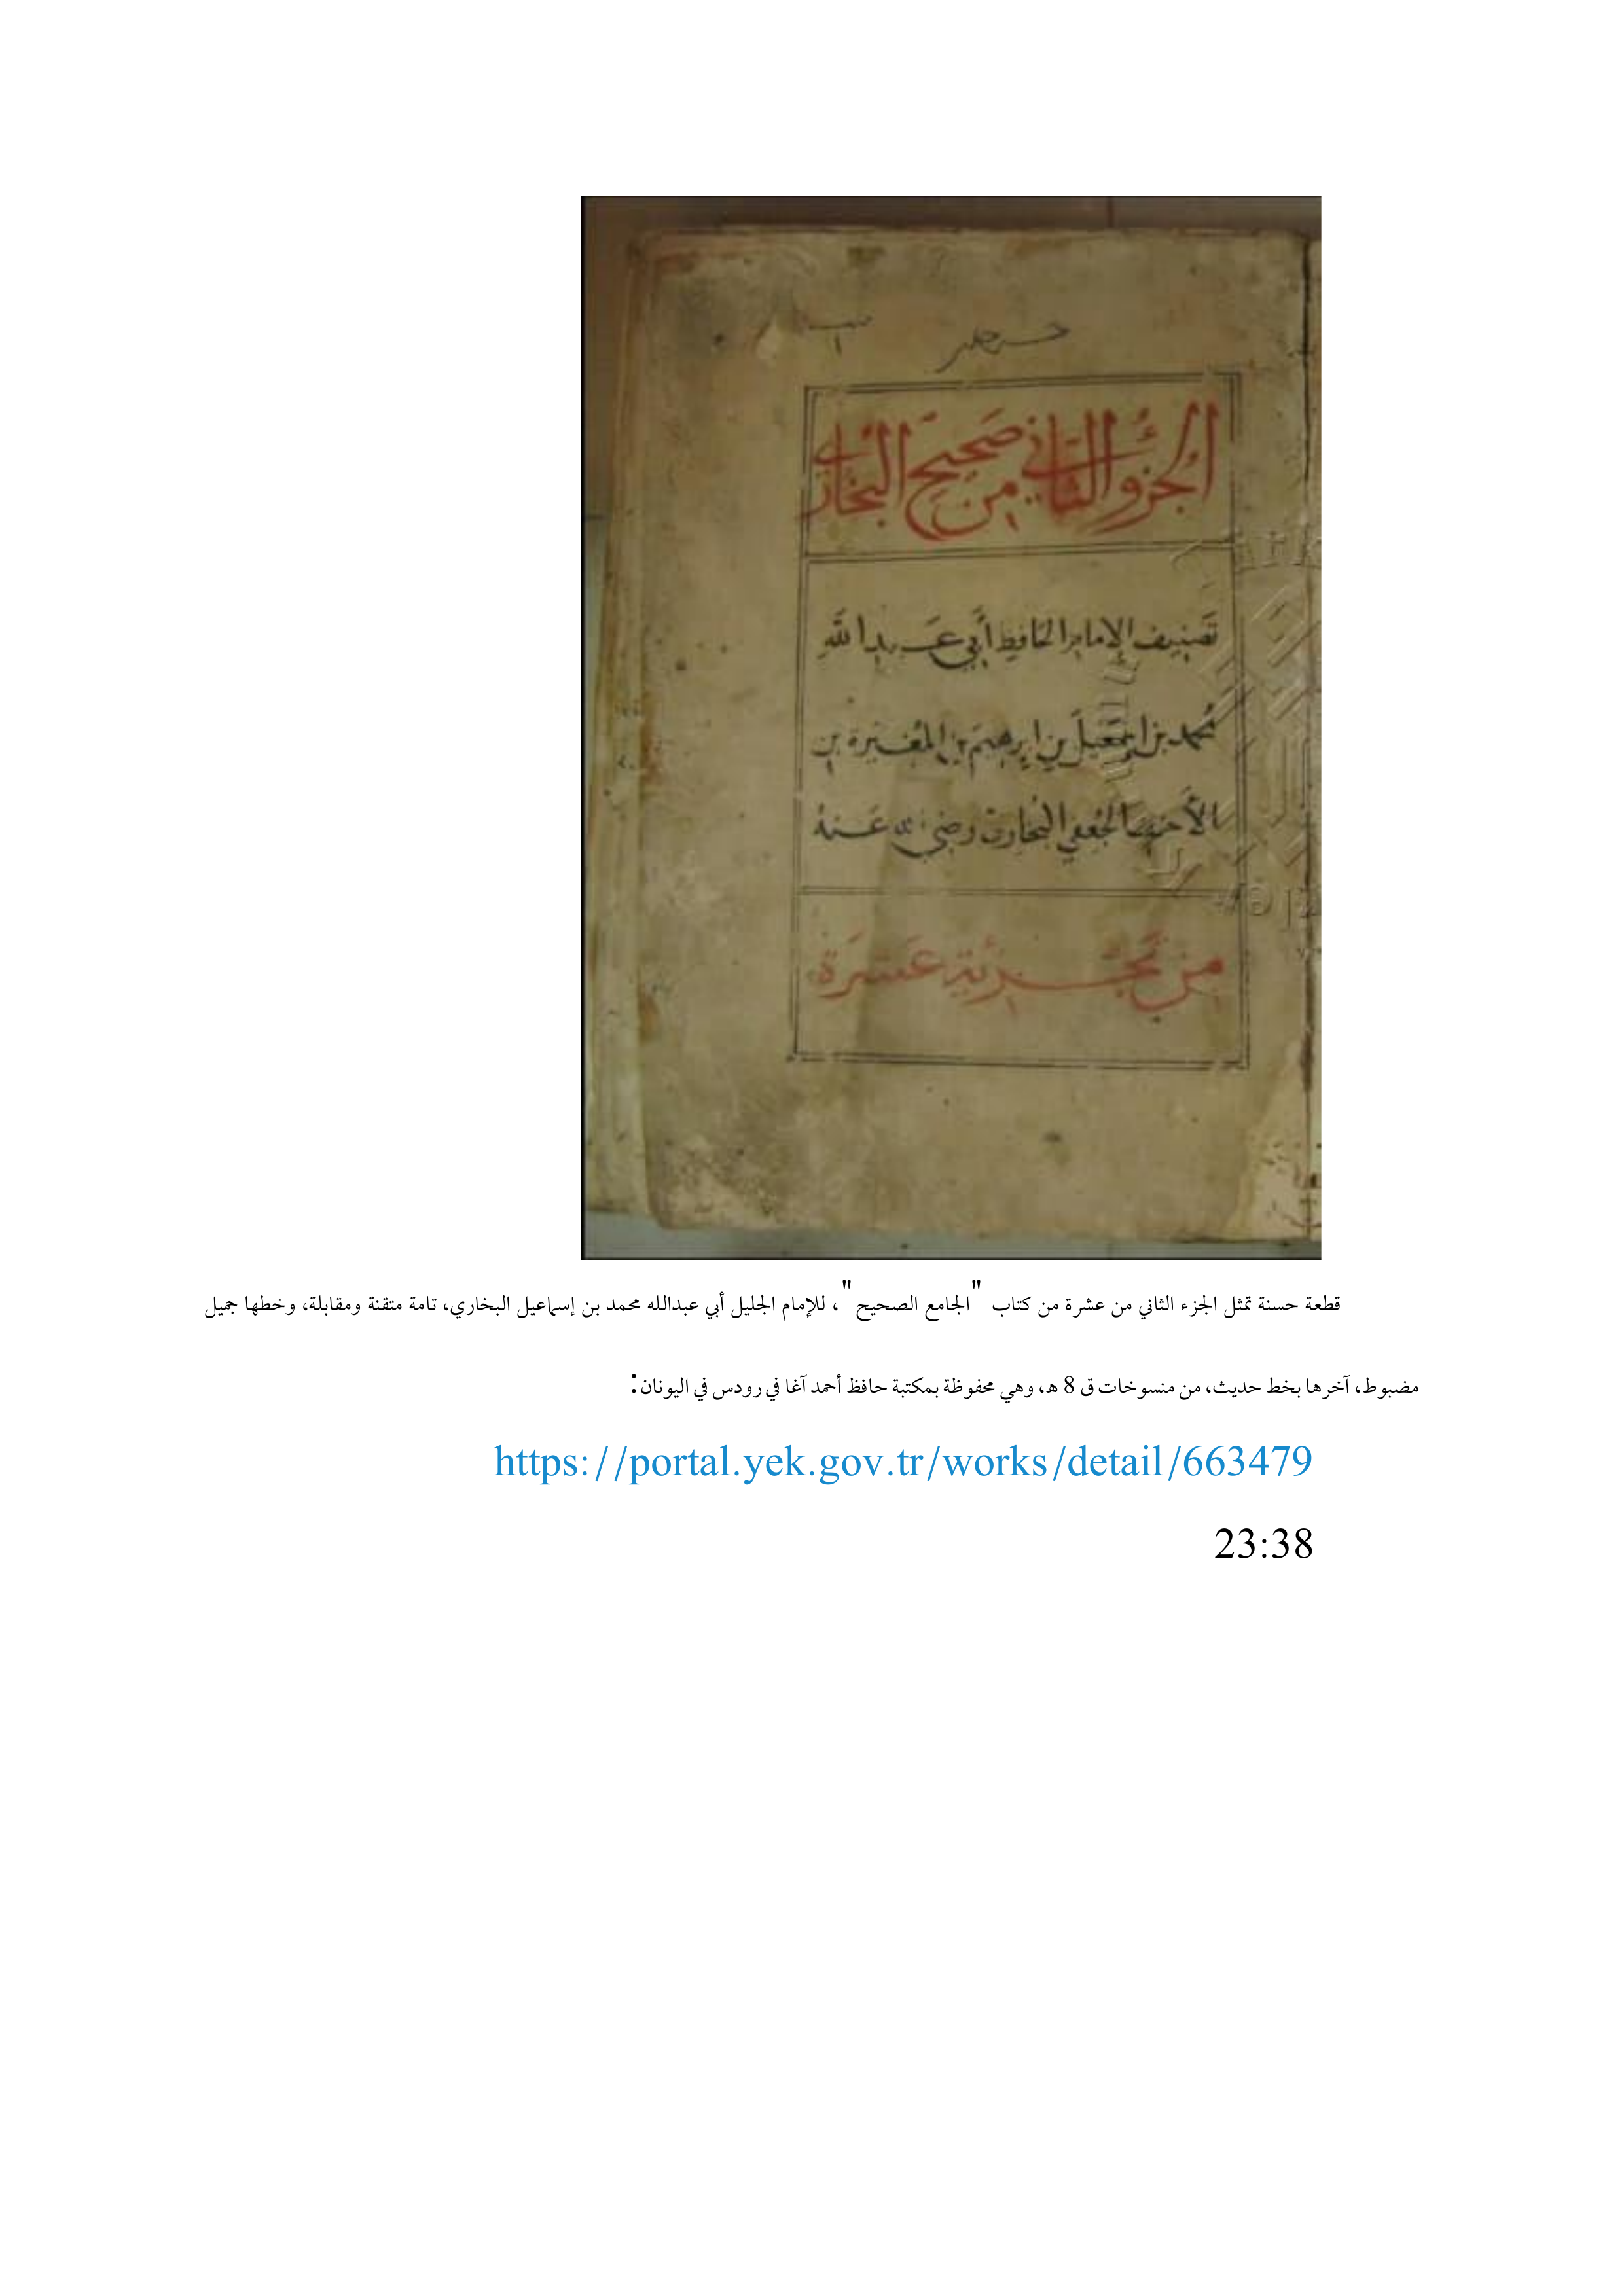 الجزؤ الثاني من صحيح البخاري
تَصنيف الإمام الحافظ أَبي عَبد اللَّهِ
مُحمد بن إسمعيل بن ابرهيم بن المُغيرة بن
الأَحنف الجُعفي البخاري رضي الله عَنهُ
من تَجزئة عَشرة
قطعة حسنة تمثل الجزء الثاني من عشرة من كتاب "الجامع الصحيح"، للإمام الجليل أبي عبدالله محمد بن إسماعيل البخاري، تامة متقنة ومقابلة، وخطها جميل
مضبوط، آخرها بخط حديث، من منسوخات ق 8 هـ، وهي محفوظة بمكتبة حافظ أحمد آغا في رودس في اليونان:
https://portal.yek.gov.tr/works/detail/663479
23:38